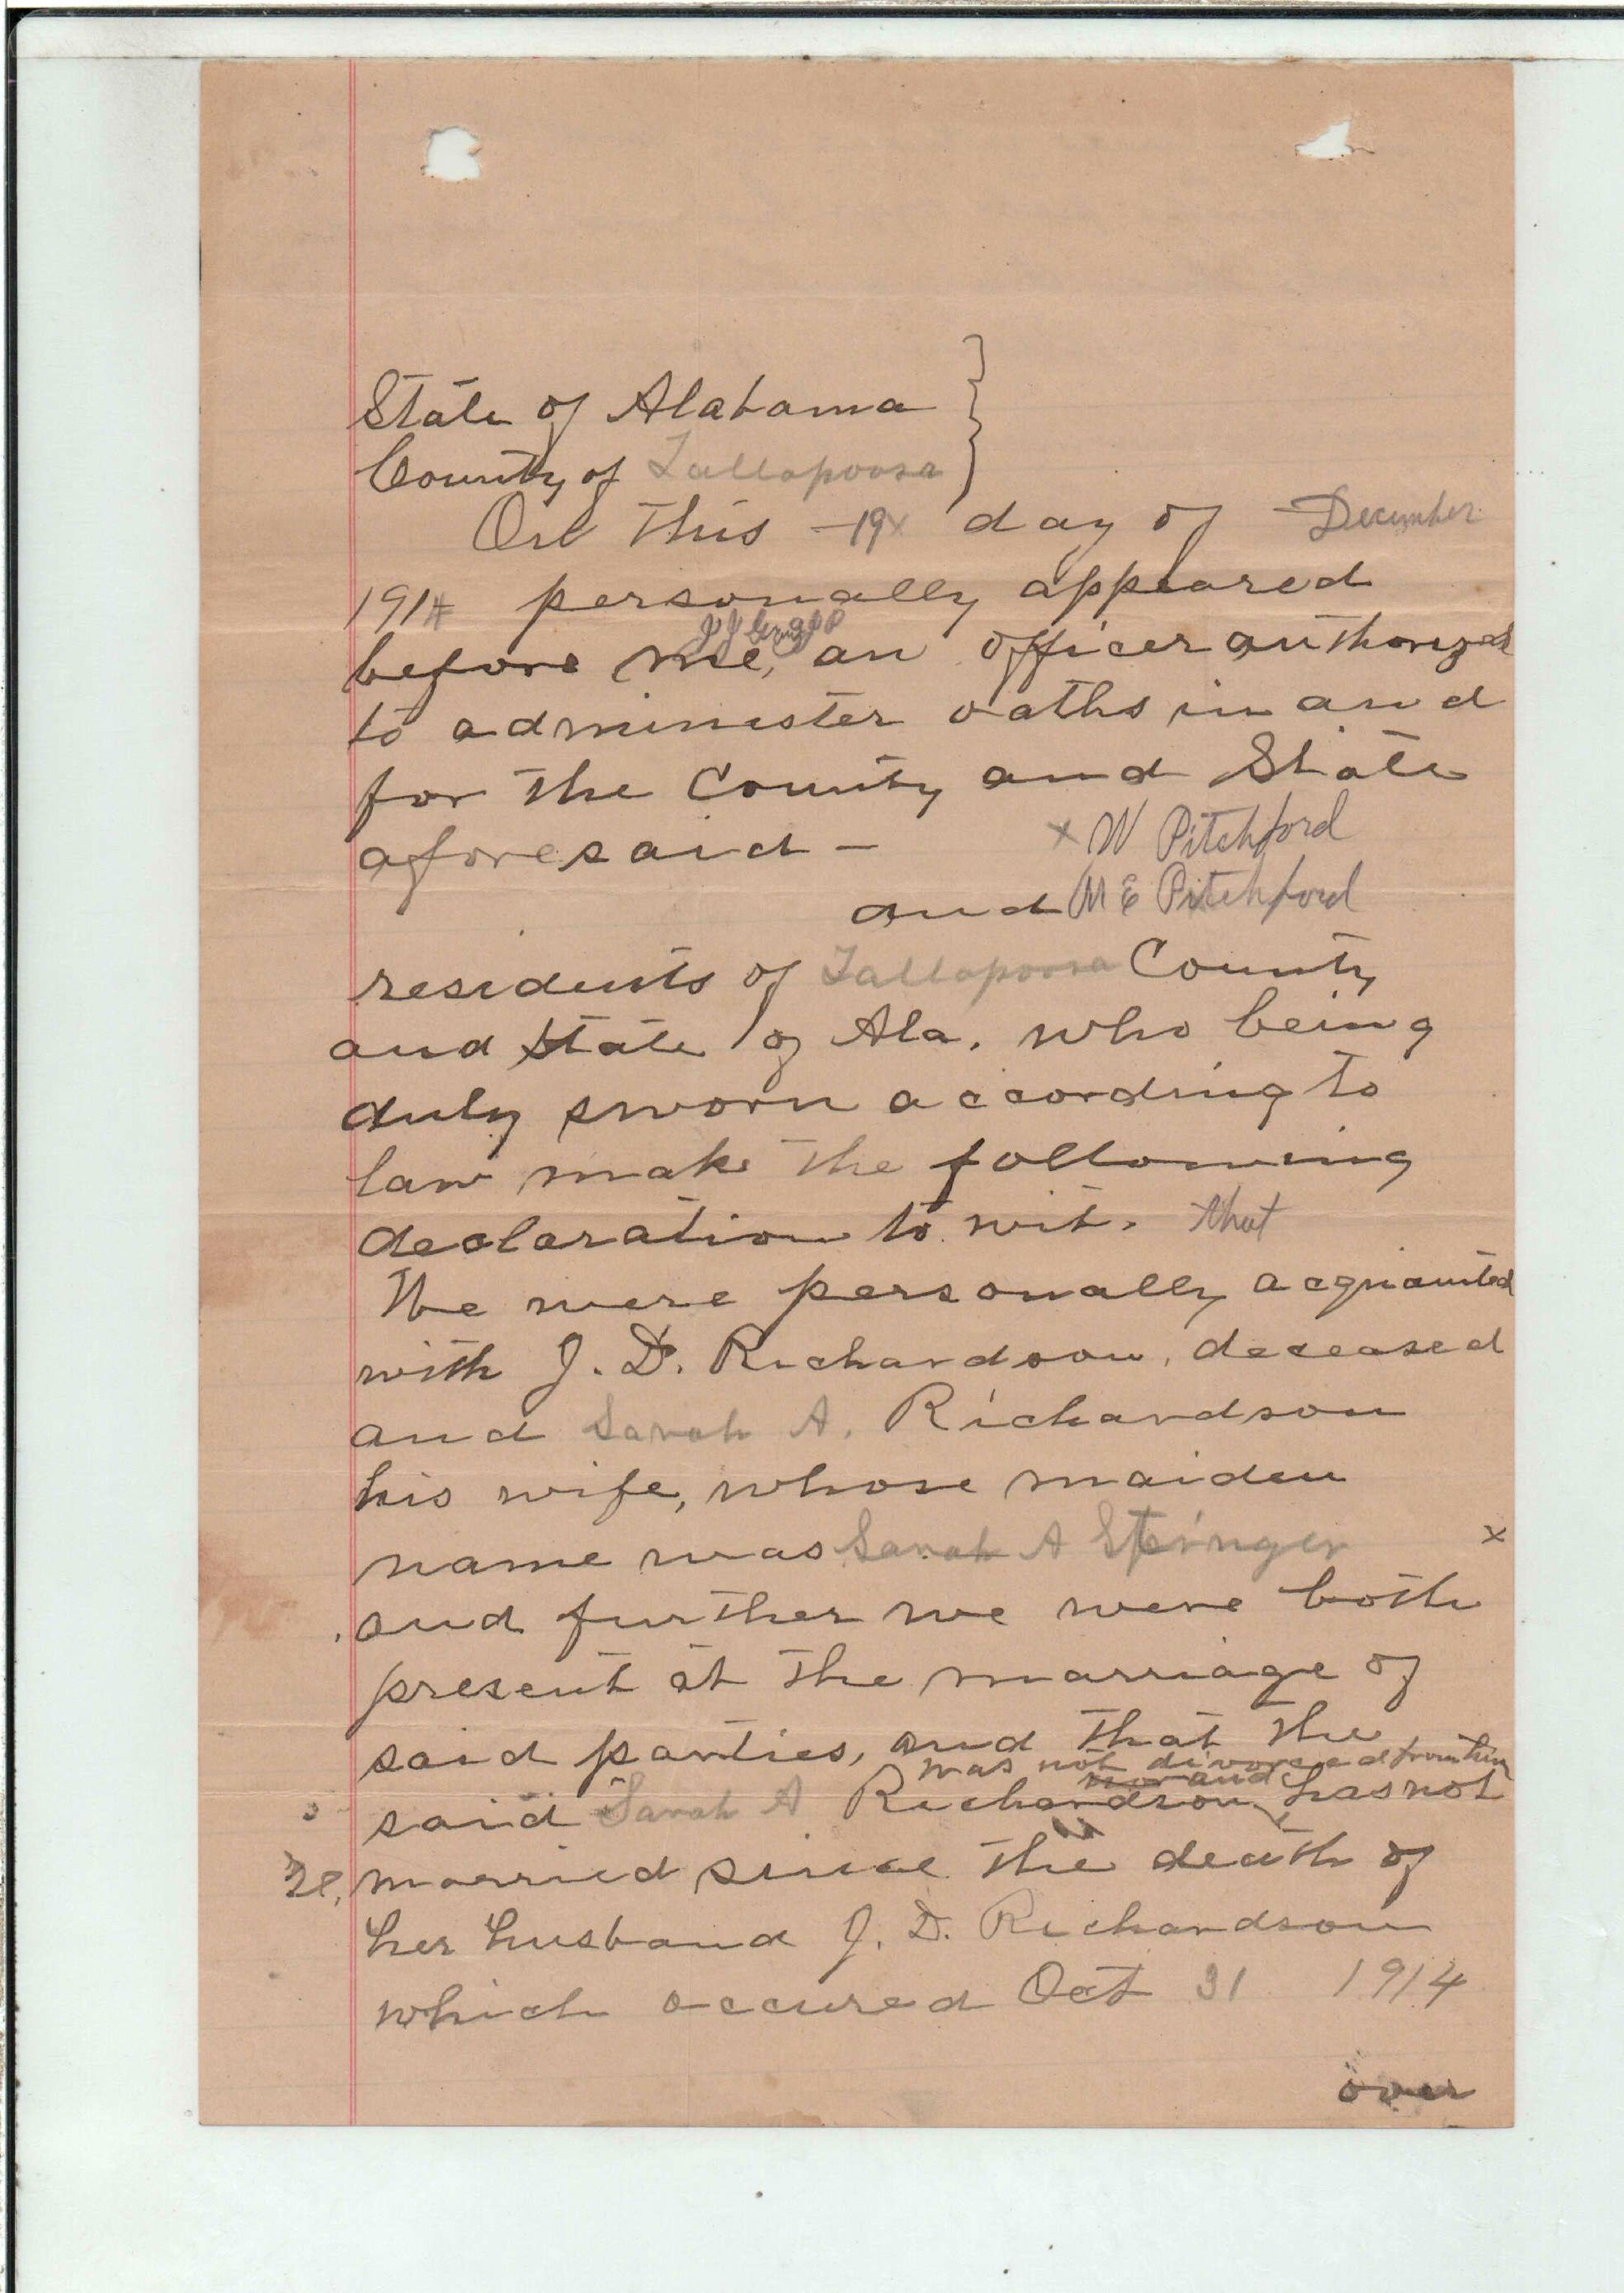 State of Alabama
County of Tallapoosa
On this -19x day of December
1914 personally appeared
J J
before me, an officer authorized
to administer oaths in and
for the County and State
aforesaid - x W Pitchford
and M E Pitchford
residents of Tallapoosa County
and State of Ala. who being
duly sworn according to
law make the following
declaration to wit. that
We were personally acquainted
with J. D. Richardson, deceased
and Sarah A. Richardson
his wife, whose maiden
name was Sarah A x
and further we were both
present at the marriage of
said parties, and that the
was not divorced from him
and
said Sarah A Richardson, has not
re married since the death of
her husband J. D. Richardson
which occured Oct 31 1914
over